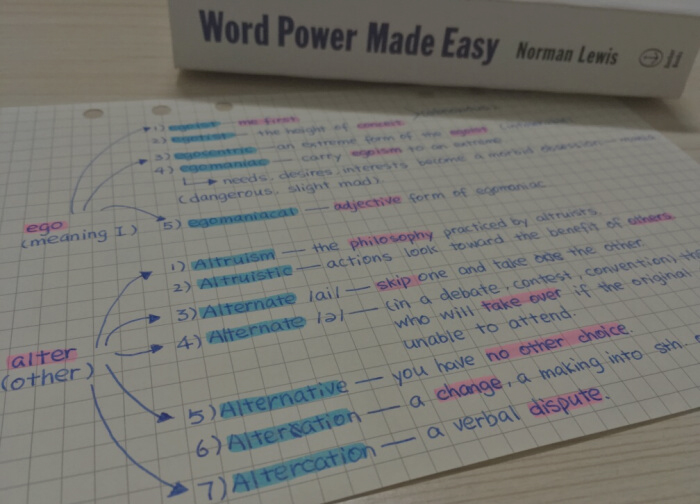 Word Power Made Easy Norman Lewis
1) egoist — me first
2) egotist — the height of conceit
3) egocentric — an extreme form of the egoist
4) egomaniac — carry egoism to an extreme
needs, desires, interests become a morbid obsession
(dangerous, slight mad).
ego
(meaning I)
5) egomaniacal — adjective form of egomaniac
1) Altruism — the philosophy practiced by altruists.
2) Altruistic — actions look toward the benefit of others
3) Alternate /ai/ — skip one and take the other
4) Alternate /ə/ — (in a debate, contest, convention)
who will take over if the original
unable to attend.
alter
(other)
5) Alternative — you have no other choice.
6) Alteration — a change, a making into sth.
7) Altercation — a verbal dispute.